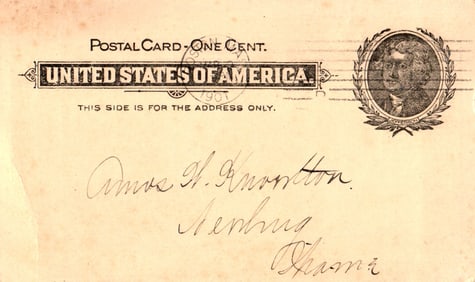 POSTAL CARD-ONE CENT.
UNITED STATES OF AMERICA.
1901
THIS SIDE IS FOR THE ADDRESS ONLY.
Amos W. Knowlton.